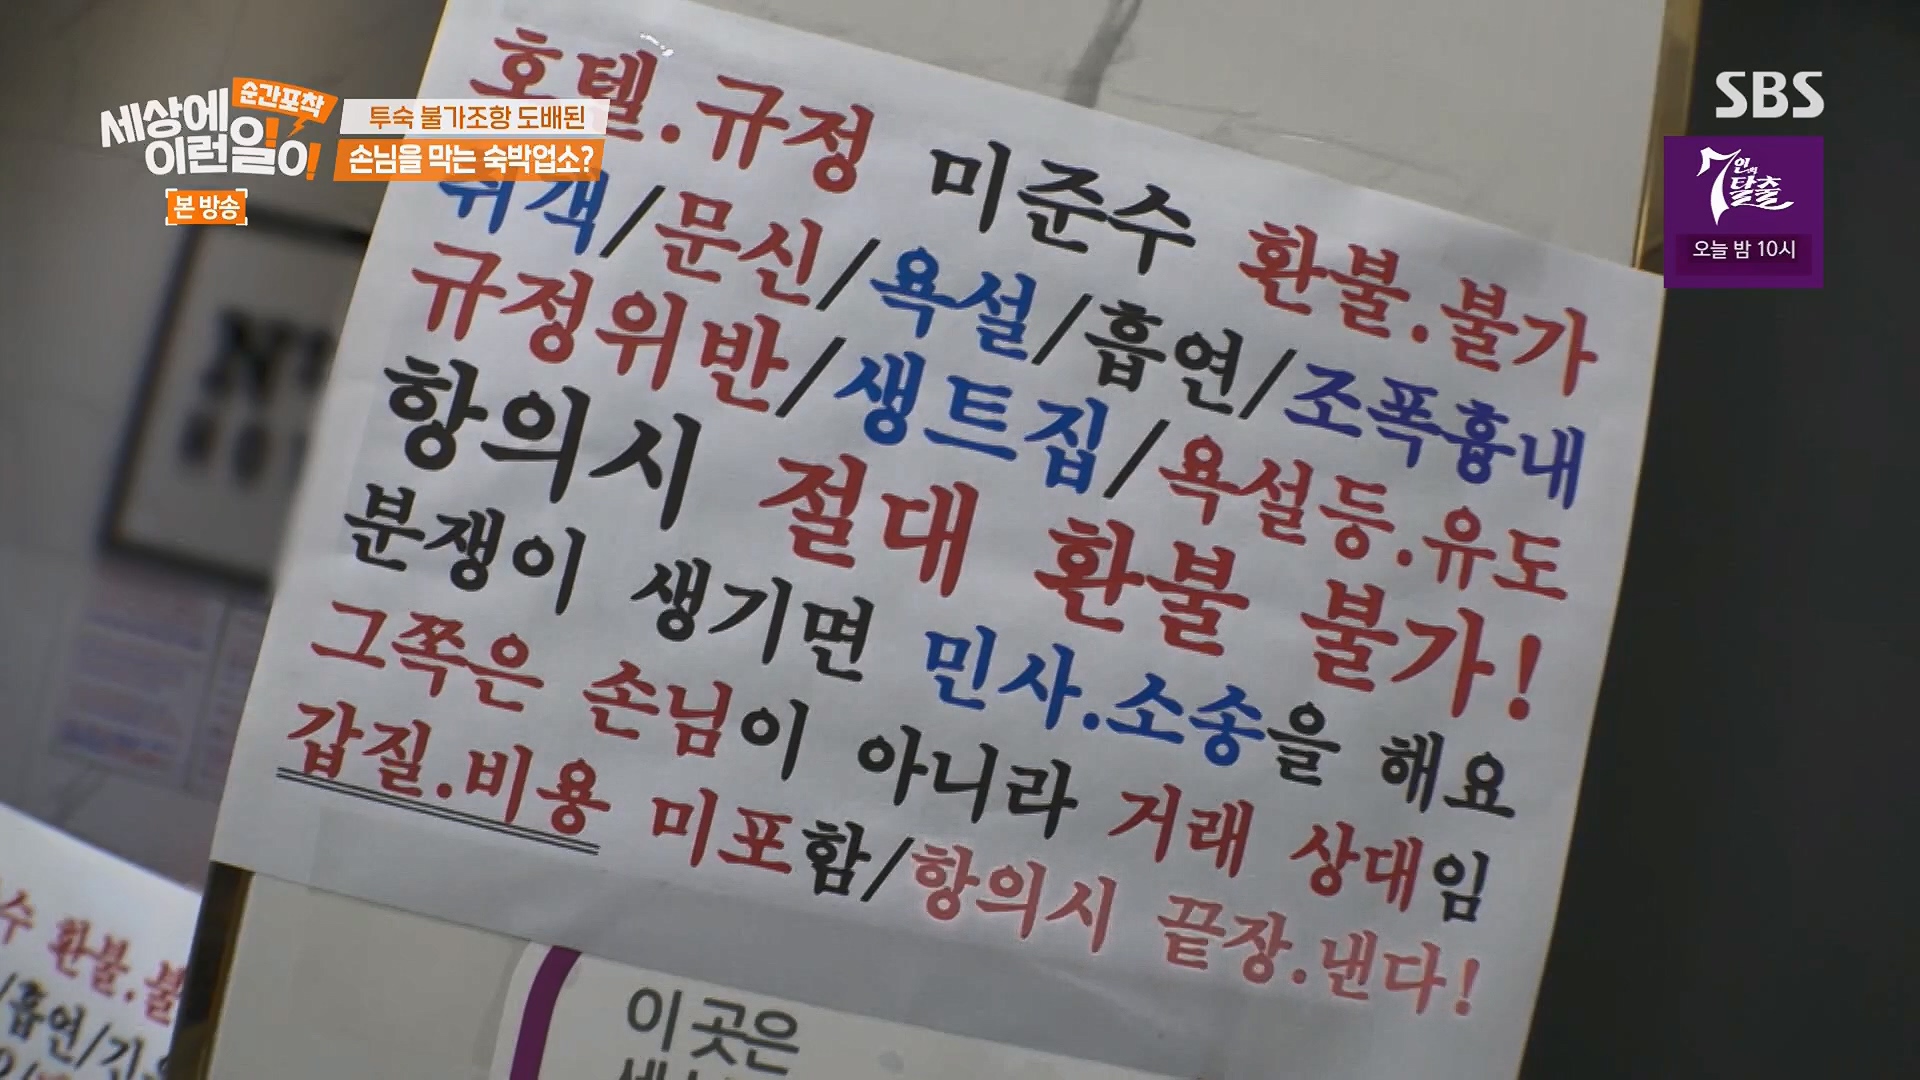 순간포착
세상에
이런일이!
본 방송
투숙 불가조항 도배된
손님을 막는 숙박업소?
SBS
7인의
탈출
오늘 밤 10시
호텔.규정 미준수 환불.불가
취객/문신/욕설/흡연/조폭흉내
규정위반/생트집/욕설등.유도
항의시 절대 환불 불가!
분쟁이 생기면 민사.소송을 해요
그쪽은 손님이 아니라 거래 상대임
갑질.비용 미포함/항의시 끝장.낸다!
이 곳은
수 환불.불
/흡연/